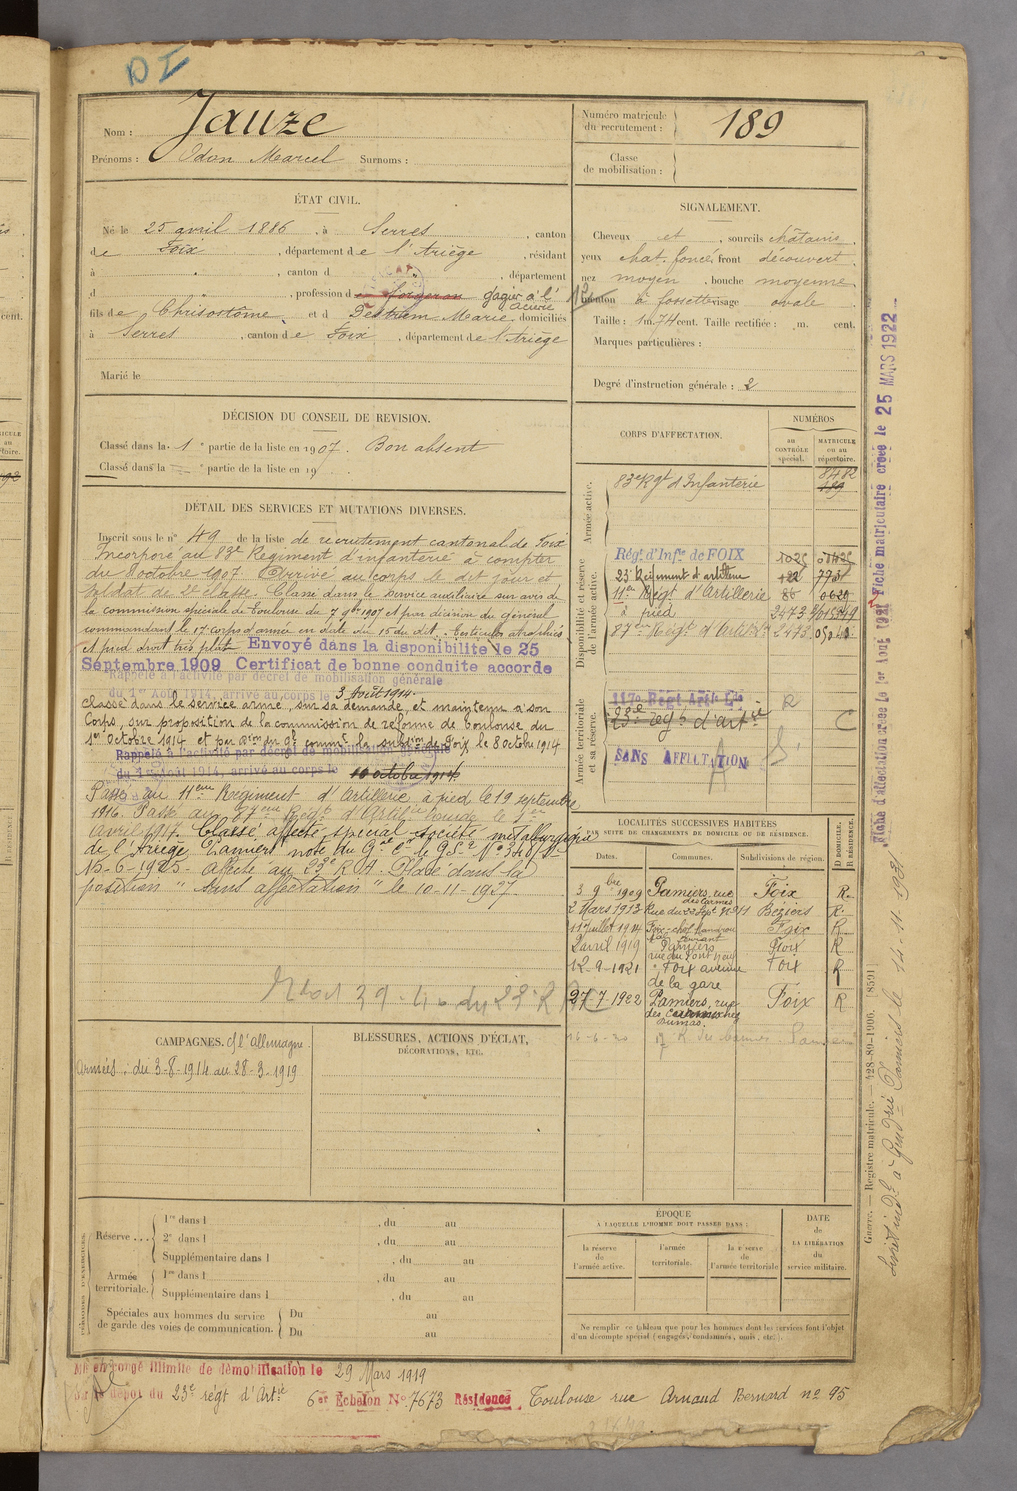 DI
Nom : Jauze
Prénoms : Odon Marcel Surnoms :
Numéro matricule du recrutement : 189
Classe de mobilisation :
ÉTAT CIVIL.
Né le 25 avril 1886, à Serres, canton
de Foix, département de l'Ariège, résidant
à " , canton d " , département
d " , profession de forgeron d'agier à l'
aciérie
fils de Chrisostôme et d Destrem Marie domiciliés
à Serres, canton de Foix, département de l'Ariège
Marié le
SIGNALEMENT.
Cheveux et , sourcils châtains.
yeux chat. foncé, front découvert
nez moyen, bouche moyenne
menton à fossette visage ovale
Taille : 1m. 74 cent. Taille rectifiée : m. cent.
Marques particulières :
Degré d'instruction générale : 2
DÉCISION DU CONSEIL DE REVISION.
Classé dans la 1e partie de la liste en 1907. Bon absent
Classé dans la e partie de la liste en 19
DÉTAIL DES SERVICES ET MUTATIONS DIVERSES.
Inscrit sous le n° 49 de la liste de recrutement cantonal de Foix
Incorporé au 83e Régiment d'infanterie à compter
du 8 octobre 1907. Arrivé au corps le dit jour et
soldat de 2e classe. Classé dans le service auxiliaire sur avis de
la commission spéciale de Toulouse du 7 9bre 1907 et par décision du général
commandant le 17e corps d'armée en date du 15 du dit. Testicules atrophiés
et pied droit très plat. Envoyé dans la disponibilité le 25
Septembre 1909 Certificat de bonne conduite accordé
Rappelé à l'activité par décret de mobilisation générale
du 1er Août 1914, arrivé au corps le 3 août 1914.
Classé dans le service armé, sur sa demande, et maintenu à son
Corps, sur proposition de la commission de réforme de Toulouse du
1er Octobre 1914 et par don du Gl commt la subdon de Foix le 8 octobre 1914
Rappelé à l'activité par décret de mobilisation générale
du 1er août 1914, arrivé au corps le 10 octobre 1914
Passé au 11eme Régiment d'Artillerie à pied le 19 septembre
1916. Passé au 87eme Régt d'Artie lourde le 1er
Avril 1917. Classé affecté spécial Société métallurgique
de l'Ariège Pamiers note du Gal Ct le 9 S.
15-6-1925. Affecté au 23e R A. Placé dans la
position " Sans affectation " le 10-11-1927.
CORPS D'AFFECTATION.
NUMÉROS
au CONTRÔLE spécial.
MATRICULE ou au répertoire.
Armée active.
83e Rgt d'Infanterie 8482
189
Disponibilité et réserve de l'armée active.
Régt d'Infie de FOIX 1025
23e Régiment d'artillerie
11eme Régt d'Artillerie 86 0629
à pied 2473
87eme Régt d'Artie Lde 2473
Armée territoriale et sa réserve.
117e Régt Artie Lde R
23e Régt d'artie C
SANS AFFECTATION
LOCALITÉS SUCCESSIVES HABITÉES
PAR SUITE DE CHANGEMENTS DE DOMICILE OU DE RÉSIDENCE.
Dates. Communes. Subdivisions de région. D DOMICILE. R RÉSIDENCE.
3 9bre 1909 Pamiers, rue des Carmes Foix R.
2 Mars 1913 Rue du 22 Sept n°11 Béziers R.
11 Juillet 1914 Foix Foix R
2 avril 1919 Pamiers rue du Pont Neuf Foix R
12-9-1921 Foix avenue de la gare Foix R
27-7-1922 Pamiers, rue des Carmes chez Dumas. Foix R
16-6-30 17 R des Carmes. Pamiers
CAMPAGNES. C/ l'Allemagne
Armées : du 3-8-1914 au 28-3-1919
BLESSURES, ACTIONS D'ÉCLAT,
DÉCORATIONS, ETC.
PÉRIODES D'EXERCICES.
Réserve
1re dans l , du au
2e dans l , du au
Supplémentaire dans l , du au
Armée territoriale.
1re dans l , du au
Supplémentaire dans l , du au
Spéciales aux hommes du service de garde des voies de communication.
Du au
Du au
ÉPOQUE
À LAQUELLE L'HOMME DOIT PASSER DANS :
la réserve de l'armée active.
l'armée territoriale.
la réserve de l'armée territoriale
DATE de LA LIBÉRATION du service militaire.
Ne remplir ce tableau que pour les hommes dont les services font l'objet
d'un décompte spécial (engagés, condamnés, omis, etc.).
Mis en congé illimité de démobilisation le 29 Mars 1919
dépôt du 23e régt d'Artie 6er Echelon N° 7673 Résidence Toulouse rue Arnaud Bernard n° 95
Fiche matriculaire créée le 25 MARS 1922
Fiche d'affectation créée le 1er Août 1921
Guerre. — Registre matricule. — 428-89-1906. [8591]